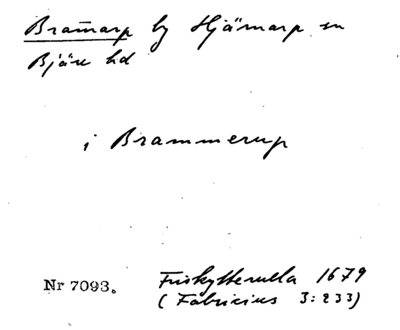 Bram̄arp by Hjärnarp sn
Bjäre hd
i Brammerup
Nr 7093.
Friskytterulla 1679
(Fabricius 3:233)